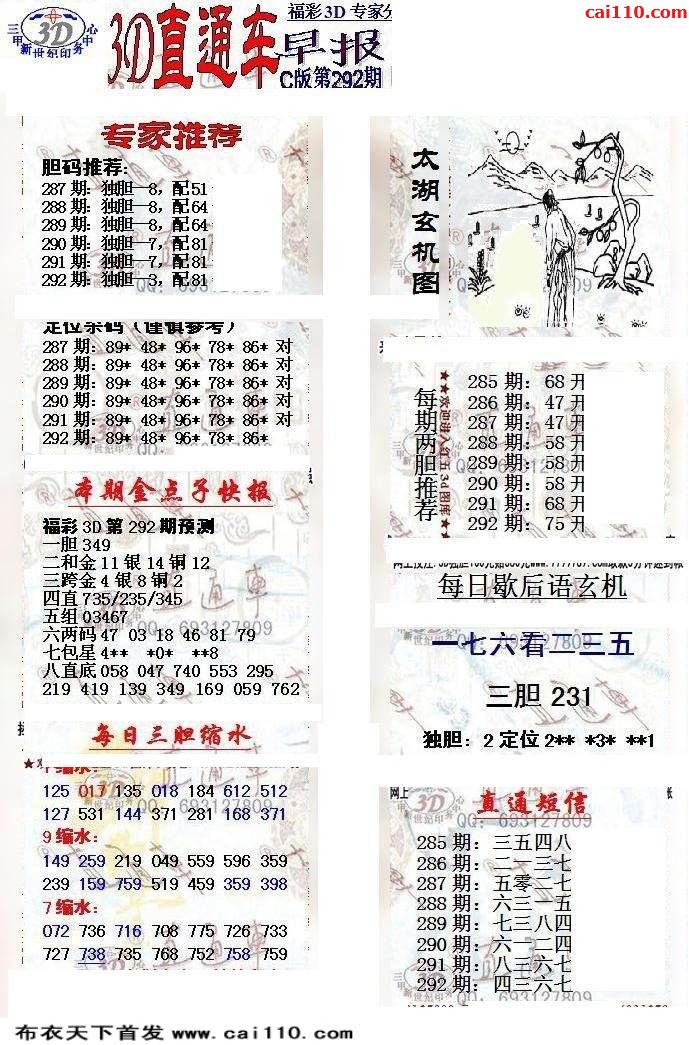 cai110.com
三甲 3D 心中
新世纪印务
3D直通车
福彩3D 专家分
早报
C版第292期
专家推荐
胆码推荐:
287期：独胆—8，配51
288期：独胆—8，配64
289期：独胆—8，配64
290期：独胆—7，配81
291期：独胆—7，配81
292期：独胆—3，配81
定位杀码（谨慎参考）
287期：89* 48* 96* 78* 86* 对
288期：89* 48* 96* 78* 86* 对
289期：89* 48* 96* 78* 86* 对
290期：89* 48* 96* 78* 86* 对
291期：89* 48* 96* 78* 86* 对
292期：89* 48* 96* 78* 86*
本期金点子快报
福彩3D第292期预测
一胆349
二和金11银14铜12
三跨金4银8铜2
四直735/235/345
五组03467
六两码47 03 18 46 81 79
七包星4** *0* **8
八直底058 047 740 553 295
219 419 139 349 169 059 762
每日三胆缩水
125 017 135 018 184 612 512
127 531 144 371 281 168 371
9缩水：
149 259 219 049 559 596 359
239 159 759 519 459 359 398
7缩水：
072 736 716 708 775 726 733
727 738 735 768 752 758 759
太湖玄机图
每期两胆推荐
★★欢迎进入红五3d图库★★
285期：68开
286期：47开
287期：47开
288期：58开
289期：58开
290期：58开
291期：68开
292期：75开
每日歇后语玄机
一七六看二三五
三胆231
独胆：2定位2** *3* **1
直通短信
QQ：693127809
285期：三五四八
286期：二一三七
287期：五零二七
288期：六三一五
289期：七三八四
290期：六一二四
291期：八三六七
292期：四三六七
布衣天下首发www.cai110.com